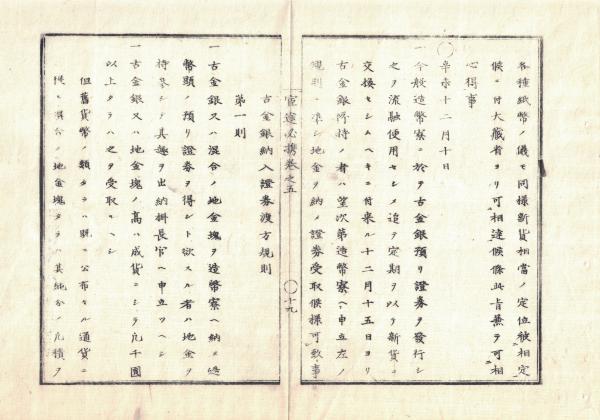 各種紙幣ノ儀モ同樣新貨相當ノ定位被相定
候ニ付大藏省ヨリ可相達候條此旨兼テ可相
心得事
辛未十二月十日
一今般造幣寮ニ於テ古金銀預リ證券ヲ發行シ
之ヲ流融使用セシメ追テ定期ヲ以テ新貨ニ
交換セシムヘキニ付來ル十二月十五日ヨリ
古金銀所持ノ者ハ望次第造幣寮ヘ申立左ノ
規則ニ準シ地金ヲ納メ證券受取候樣可致事
官途必携卷之五
十九
古金銀納入證券渡方規則
第一則
一古金銀又ハ混合ノ地金塊ヲ造幣寮ヘ納メ造
幣頭ノ預リ證券ヲ得ント欲スル者ハ地金ヲ
持參シテ其趣ヲ出納掛長官ヘ申立ツヘシ
一古金銀又ハ地金塊ノ高ハ成貨ニシテ凡千圓
以上タラハ之ヲ受取ヘシ
但舊貨幣ノ類タラハ既ニ公布セル通貨ニ
混合ノ地金塊タラハ其純分ノ凡積ヲ